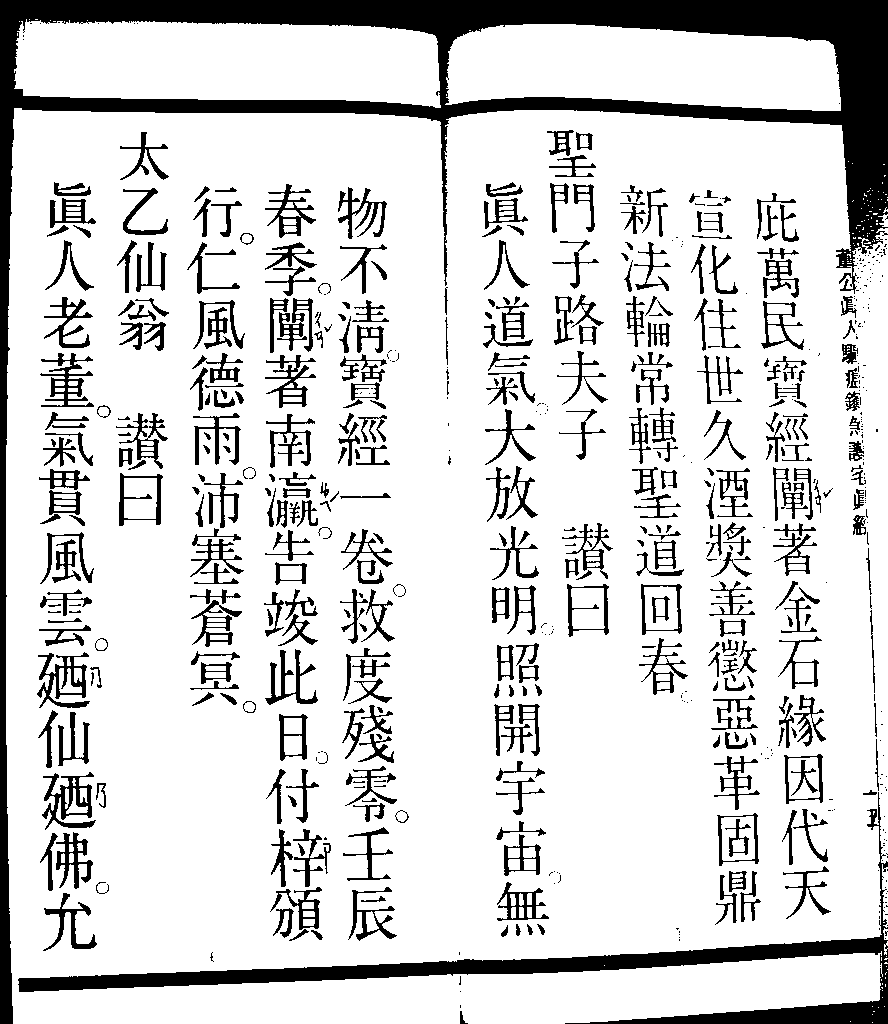 董公眞人驅瘟鎮煞護宅眞經
庇萬民寶經闡著金石緣因代天
宣化住世久湮獎善懲惡革固鼎
新法輪常轉聖道回春。
聖門子路夫子　讃曰
眞人道氣。大放光明。照開宇宙。無
物不清。寶經一卷。救度殘零。壬辰
春季。闡著南瀛。告竣此日。付梓頒
行。仁風德雨。沛塞蒼冥。
太乙仙翁　讃曰
眞人老董。氣貫風雲。廼仙廼佛。允